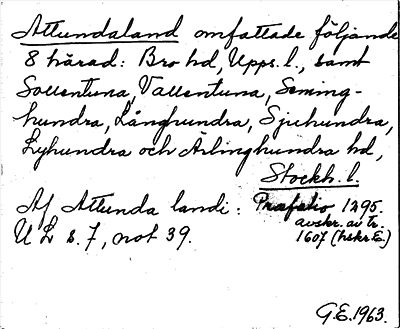 Attundaland omfattade följande
8 härad: Bro hd, Upps. l., samt
Sollentuna, Vallentuna, Seming-
hundra, Långhundra, Sjuhundra,
Lyhundra och Ärlinghundra hd,
Stockh. l.
Af Attunda landi: Præfatio 1295.
avskr. av tr.
1607 (hskr E.)
U L s. 7, not 39.
G.E. 1963.